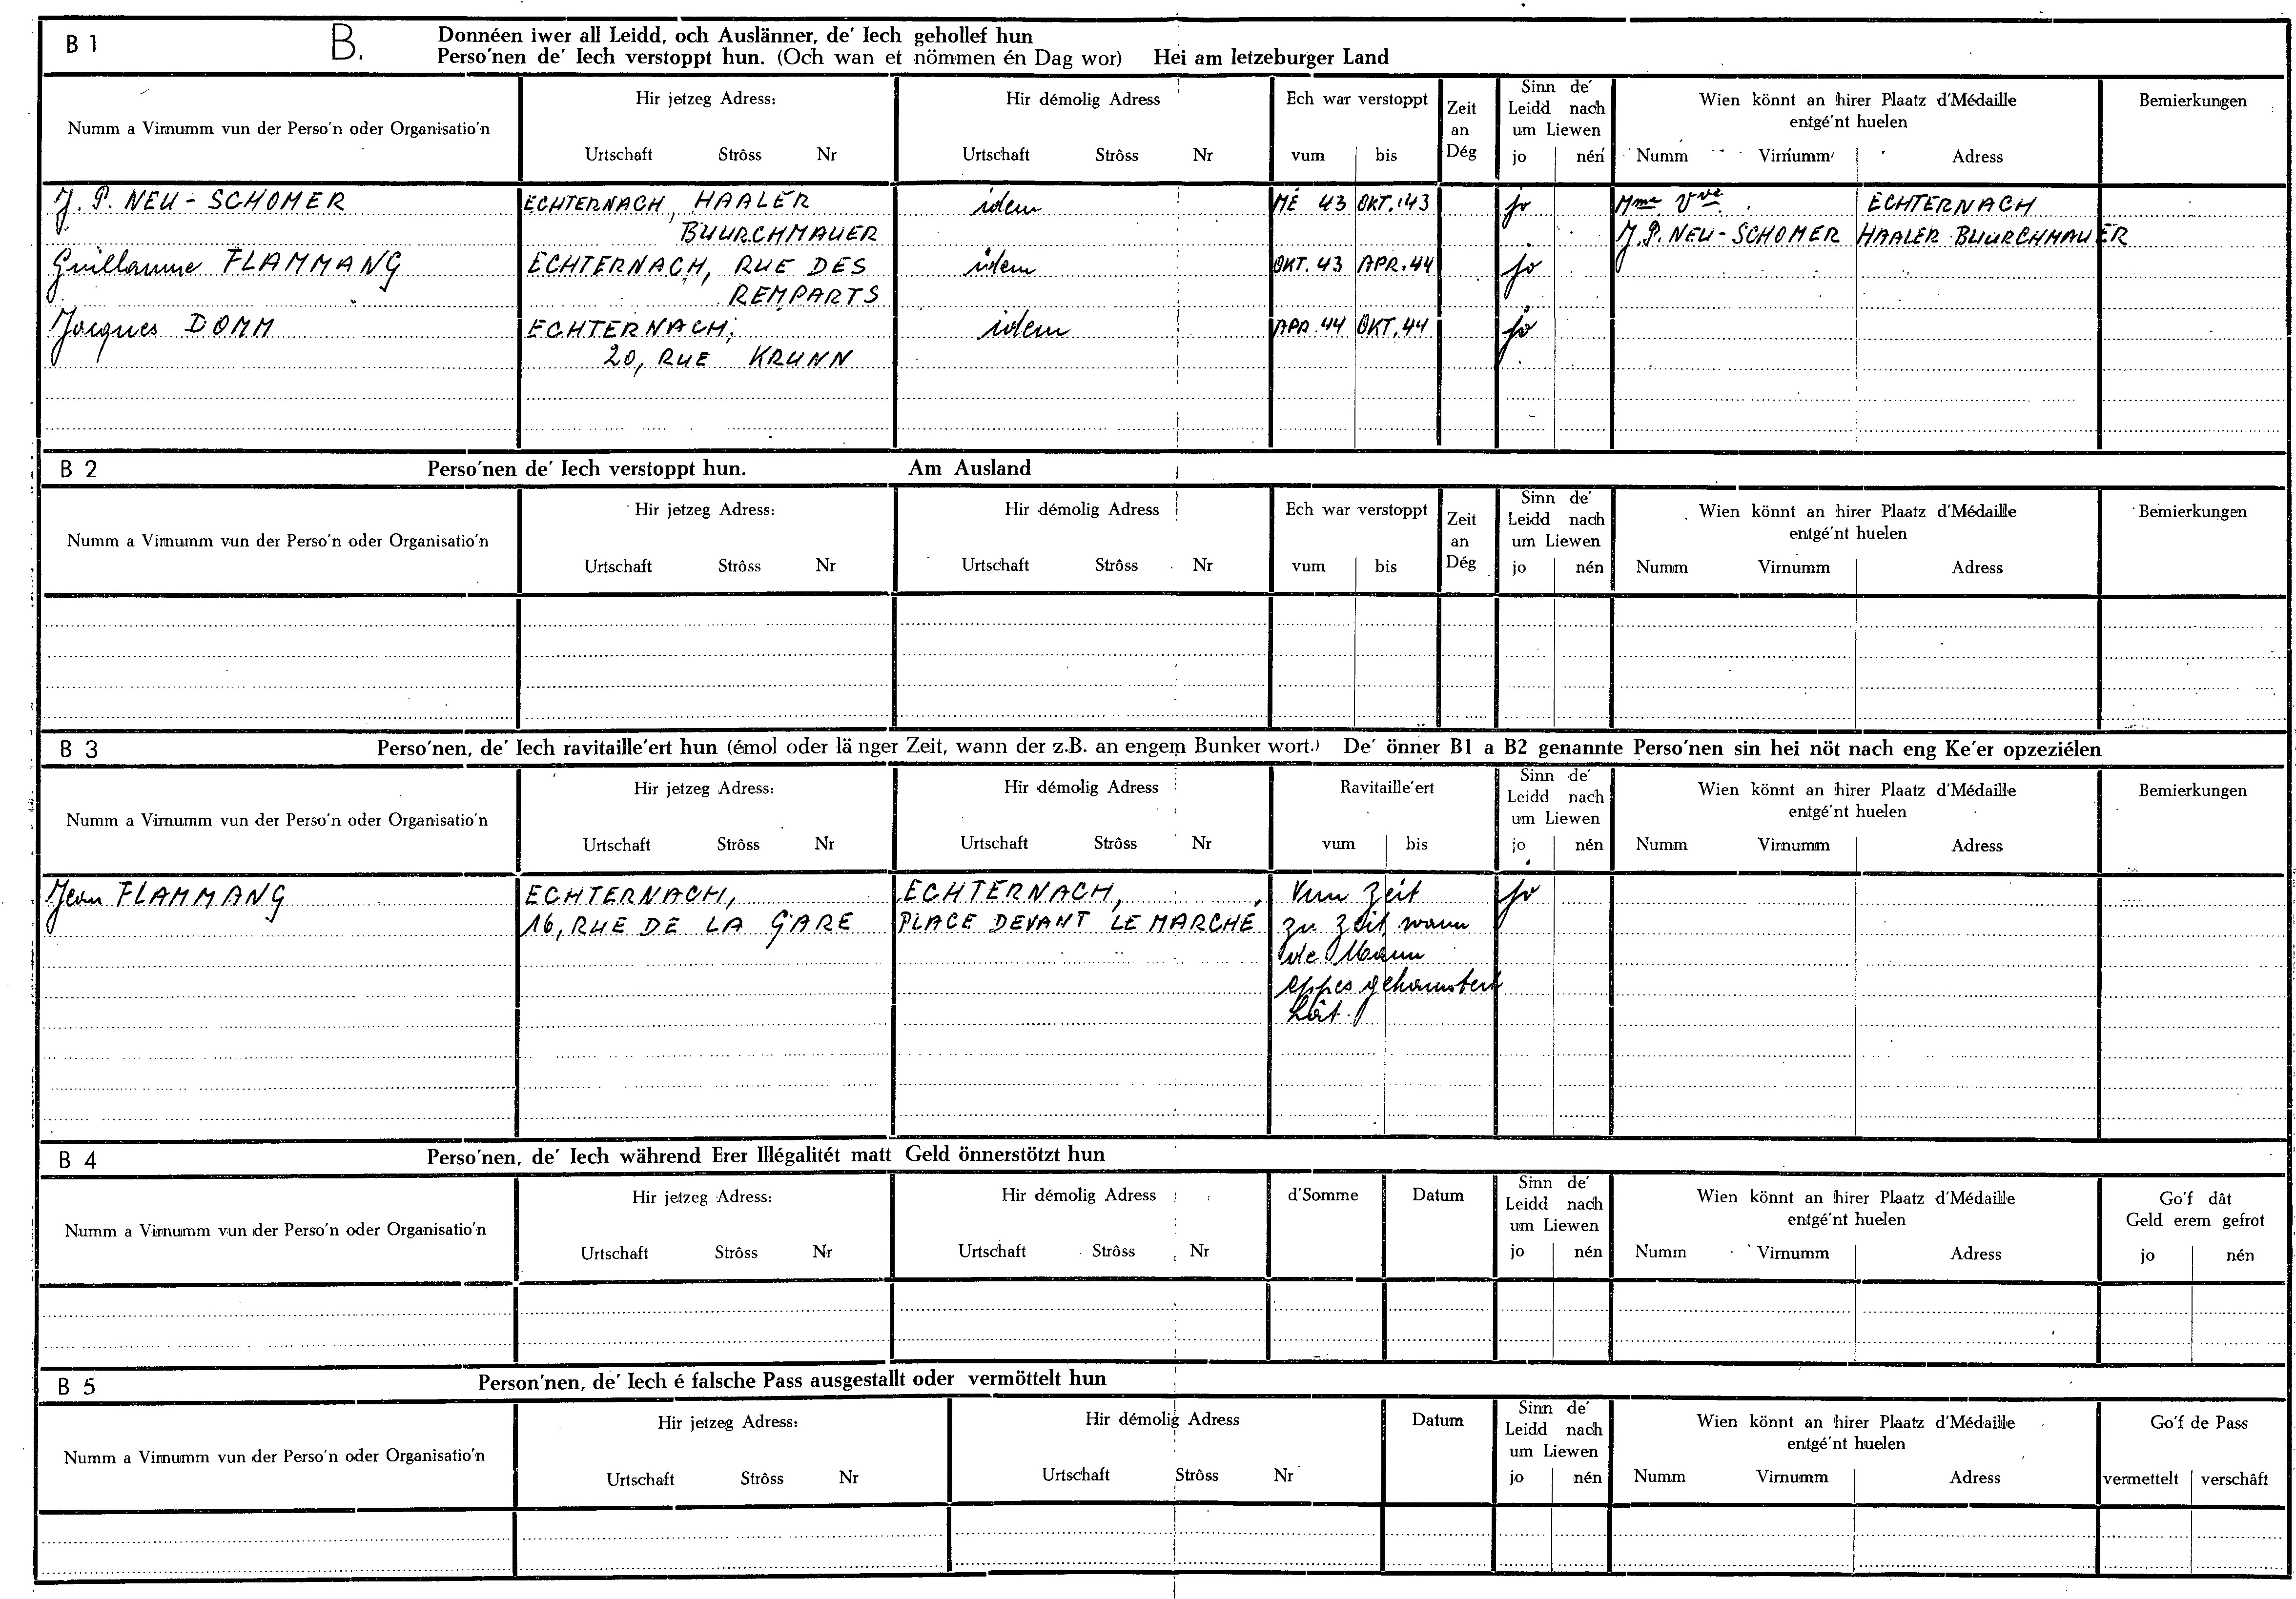 B 1 B. Donnéen iwer all Leidd, och Auslänner, de' Iech gehollef hun
Perso'nen de' Iech verstoppt hun. (Och wan et nömmen én Dag wor) Hei am letzeburger Land
Numm a Virnumm vun der Perso'n oder Organisatio'n
Hir jetzeg Adress:
Urtschaft Strôss Nr
Hir démolig Adress
Urtschaft Strôss Nr
Ech war verstoppt
vum bis
Zeit
an
Dég
Sinn de'
Leidd nach
um Liewen
jo nén
Wien könnt an hirer Plaatz d'Médaille
entgé'nt huelen
Numm Virnumm Adress
Bemierkungen
J. P. NEU - SCHOMER ECHTERNACH, HAALER idem MÉ 43 OKT. 43 jo Mme Vve. ECHTERNACH
BUURCHMAUER J. P. NEU - SCHOMER HAALER BUURCHMAUER
Guillaume FLAMMANG ECHTERNACH, RUE DES idem OKT. 43 APR. 44 jo
REMPARTS
Jacques DOMM ECHTERNACH, idem APR. 44 OKT. 44 jo
20, RUE KRUNN
B 2 Perso'nen de' Iech verstoppt hun. Am Ausland
Numm a Virnumm vun der Perso'n oder Organisatio'n
Hir jetzeg Adress:
Urtschaft Strôss Nr
Hir démolig Adress
Urtschaft Strôss Nr
Ech war verstoppt
vum bis
Zeit
an
Dég
Sinn de'
Leidd nach
um Liewen
jo nén
Wien könnt an hirer Plaatz d'Médaille
entgé'nt huelen
Numm Virnumm Adress
Bemierkungen
B 3 Perso'nen, de' Iech ravitaille'ert hun (émol oder länger Zeit, wann der z.B. an engem Bunker wort.) De' önner B1 a B2 genannte Perso'nen sin hei nöt nach eng Ke'er opzeziélen
Numm a Virnumm vun der Perso'n oder Organisatio'n
Hir jetzeg Adress:
Urtschaft Strôss Nr
Hir démolig Adress
Urtschaft Strôss Nr
Ravitaille'ert
vum bis
Sinn de'
Leidd nach
um Liewen
jo nén
Wien könnt an hirer Plaatz d'Médaille
entgé'nt huelen
Numm Virnumm Adress
Bemierkungen
Jean FLAMMANG ECHTERNACH, ECHTERNACH, Vun Zeit jo
16, RUE DE LA GARE PLACE DEVANT LE MARCHÉ zu Zeit, wann
de Mann
eppes gehamstert
hât.
B 4 Perso'nen, de' Iech während Erer Illégalitét matt Geld önnerstötzt hun
Numm a Virnumm vun der Perso'n oder Organisatio'n
Hir jetzeg Adress:
Urtschaft Strôss Nr
Hir démolig Adress
Urtschaft Strôss Nr
d'Somme Datum
Sinn de'
Leidd nach
um Liewen
jo nén
Wien könnt an hirer Plaatz d'Médaille
entgé'nt huelen
Numm Virnumm Adress
Go'f dât
Geld erem gefrot
jo nén
B 5 Person'nen, de' Iech é falsche Pass ausgestallt oder vermöttelt hun
Numm a Virnumm vun der Perso'n oder Organisatio'n
Hir jetzeg Adress:
Urtschaft Strôss Nr
Hir démolig Adress
Urtschaft Strôss Nr
Datum
Sinn de'
Leidd nach
um Liewen
jo nén
Wien könnt an hirer Plaatz d'Médaille
entgé'nt huelen
Numm Virnumm Adress
Go'f de Pass
vermettelt verschâft